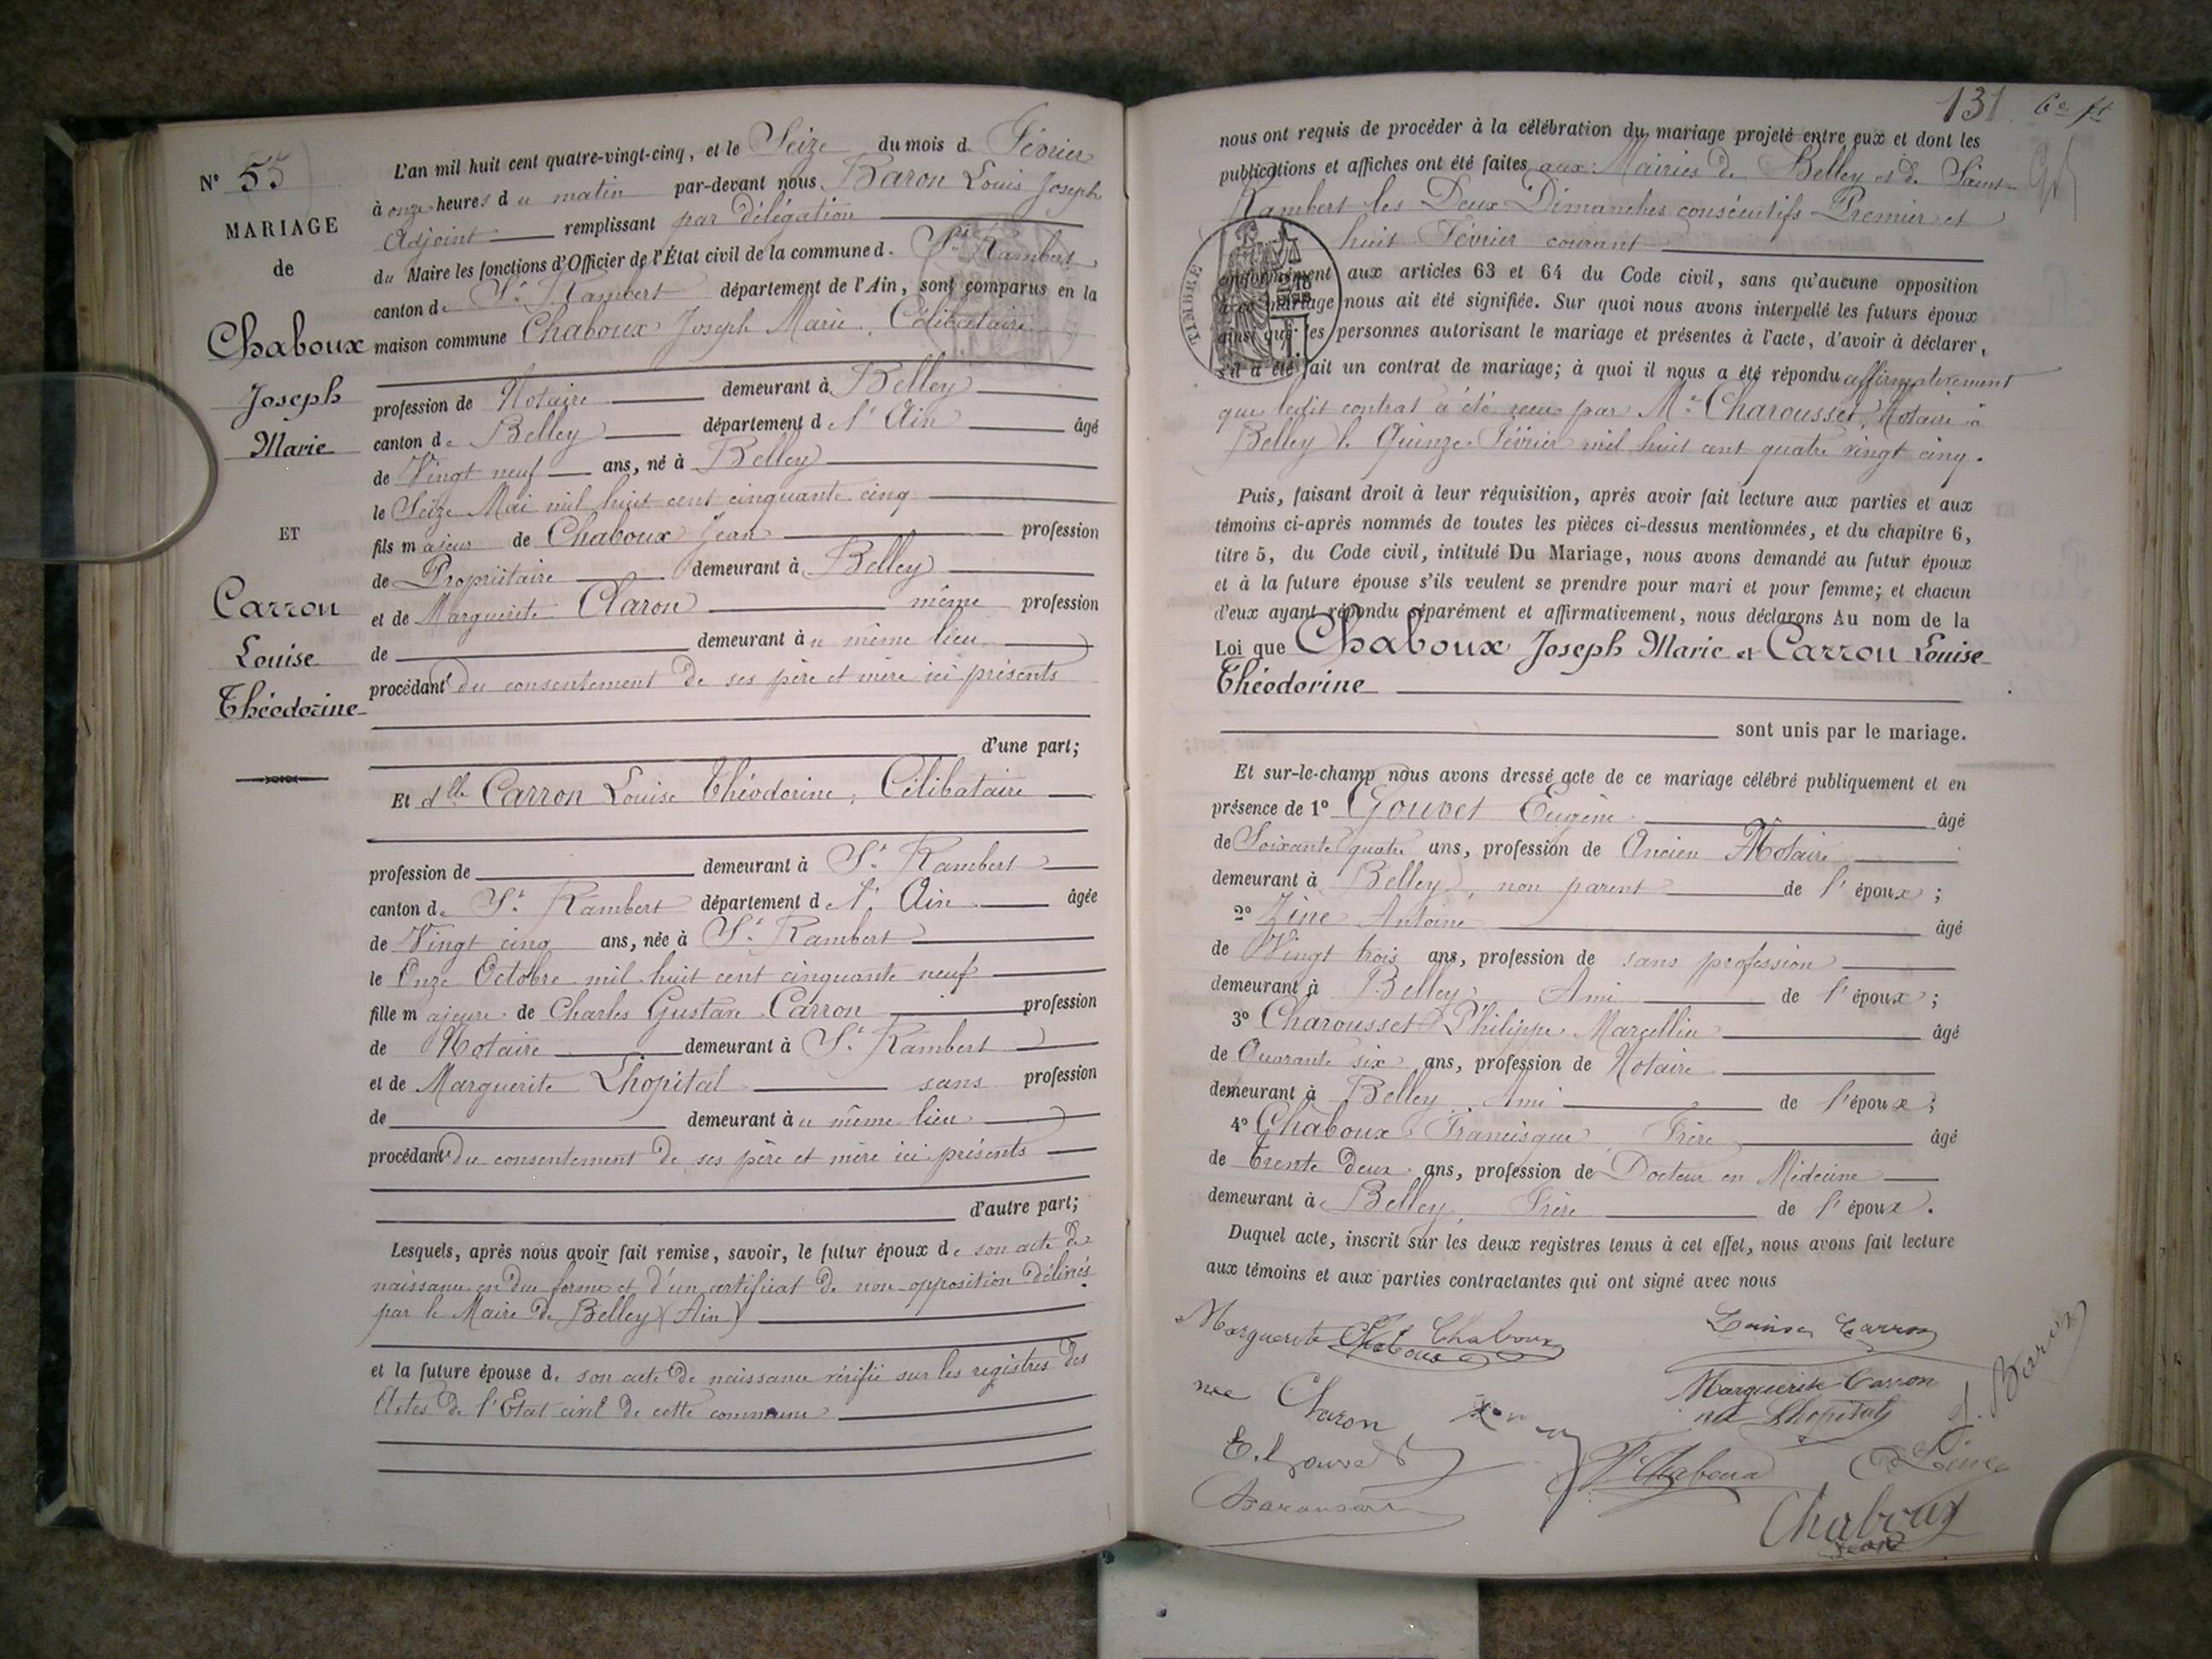 N° 55
MARIAGE
de
Chaboux
Joseph
Marie
ET
Carron
Louise
Théodorine
L'an mil huit cent quatre-vingt-cinq, et le Seize du mois d. Février
à onze heures du matin par-devant nous Baron Louis Joseph
Adjoint remplissant par délégation
du Maire les fonctions d'Officier de l'État civil de la commune d. St Rambert
canton de St Rambert département de l'Ain, sont comparus en la
maison commune Chaboux Joseph Marie, Célibataire
profession de Notaire demeurant à Belley
canton de Belley département de l'Ain âgé
de Vingt neuf ans, né à Belley
le Seize Mai mil huit cent cinquante cinq
fils majeur de Chaboux Jean profession
de Propriétaire demeurant à Belley
et de Marguerite Claron même profession
de demeurant au même lieu
procédant du consentement de ses père et mère ici présents
d'une part;
Et dlle Carron Louise Théodorine, Célibataire
profession de demeurant à St Rambert
canton de St Rambert département de l'Ain âgée
de Vingt cinq ans, née à St Rambert
le Onze Octobre mil huit cent cinquante neuf
fille majeure de Charles Gustave Carron profession
de Notaire demeurant à St Rambert
et de Marguerite Lhopital sans profession
de demeurant au même lieu
procédant du consentement de ses père et mère ici présents
d'autre part;
Lesquels, après nous avoir fait remise, savoir, le futur époux de son acte de
naissance en due forme et d'un certificat de non-opposition délivrés
par le Maire de Belley (Ain)
et la future épouse de son acte de naissance vérifié sur les registres des
Actes de l'Etat civil de cette commune
131
nous ont requis de procéder à la célébration du mariage projeté entre eux et dont les
publications et affiches ont été faites aux Mairies de Belley et de Saint
Rambert les Deux Dimanches consécutifs Premier et
huit Février courant
TIMBRE
conformément aux articles 63 et 64 du Code civil, sans qu'aucune opposition
à ce mariage nous ait été signifiée. Sur quoi nous avons interpellé les futurs époux
ainsi que les personnes autorisant le mariage et présentes à l'acte, d'avoir à déclarer,
s'il a été fait un contrat de mariage; à quoi il nous a été répondu affirmativement
que ledit contrat a été reçu par Me Charousset, Notaire à
Belley le Quinze Février mil huit cent quatre vingt cinq.
Puis, faisant droit à leur réquisition, après avoir fait lecture aux parties et aux
témoins ci-après nommés de toutes les pièces ci-dessus mentionnées, et du chapitre 6,
titre 5, du Code civil, intitulé Du Mariage, nous avons demandé au futur époux
et à la future épouse s'ils veulent se prendre pour mari et pour femme; et chacun
d'eux ayant répondu séparément et affirmativement, nous déclarons Au nom de la
Loi que Chaboux Joseph Marie et Carron Louise
Théodorine
sont unis par le mariage.
Et sur-le-champ nous avons dressé acte de ce mariage célébré publiquement et en
présence de 1° Gouvet Eugène âgé
de Soixante quatre ans, profession de Ancien Notaire
demeurant à Belley, non parent de l'époux;
2° Zine Antoine âgé
de Vingt trois ans, profession de sans profession
demeurant à Belley, Ami de l'époux;
3° Charousset Philippe Marcellin âgé
de Quarante six ans, profession de Notaire
demeurant à Belley, Ami de l'époux;
4° Chaboux Francisque, Frère âgé
de trente deux ans, profession de Docteur en Médecine
demeurant à Belley, Frère de l'époux.
Duquel acte, inscrit sur les deux registres tenus à cet effet, nous avons fait lecture
aux témoins et aux parties contractantes qui ont signé avec nous
Marguerite Chaboux Chaboux
Louise Carron
née Claron
Marguerite Carron
née Lhopital
L. Baron
E. Gouvet
Fr Chaboux
A Zine
Charousset
Chaboux